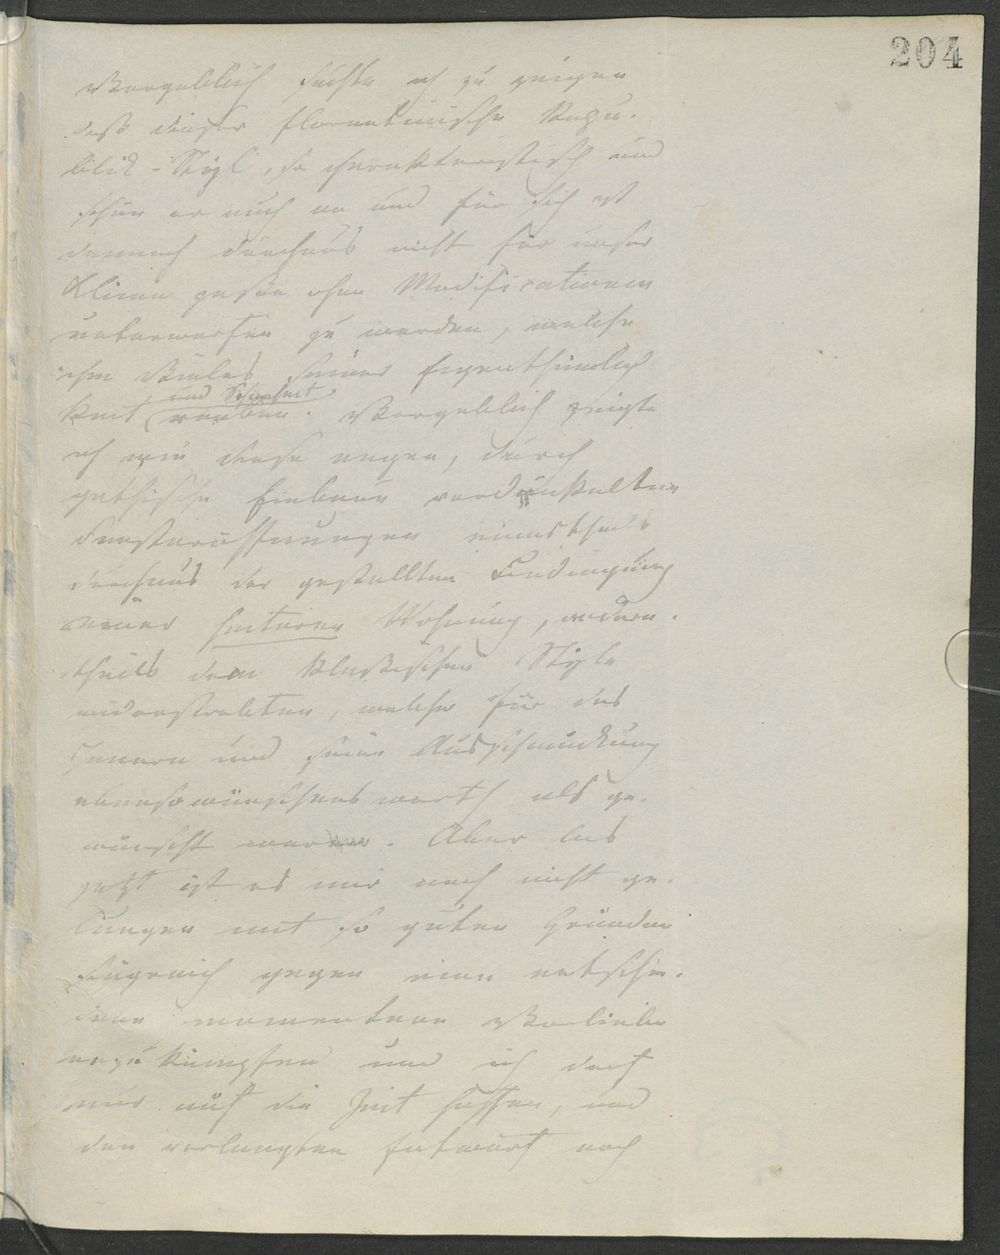 204
Vergeblich suchte ich zu zeigen
daß dieser florentinische Repu-
blik-Styl, so charakteristisch und
schön er auch an und für sich ist
dennoch durchaus nicht für unser
Klima paße ohne Modificationen
unterworfen zu werden, welche
ihm Vieles seiner Eigenthümlich
keit und Schönheit rauben. Vergeblich zeigte
ich wie diese engen, durch
gothische Einbaue verdunkelten
Fensteröffnungen einestheils
durchaus der gestellten Bedingung
einer heiteren Wohnung, andern-
theils dem klassischen Style
widerstrebten, welcher für das
Innere und seine Ausschmückung
ebenso wünschenswerth als ge-
wünscht war. Aber bis
jetzt ist es mir noch nicht ge-
lungen mit so guten Gründen
siegreich gegen eine entschie-
dene momentane Vorliebe
anzukämpfen und ich darf
nur auf die Zeit hoffen, und
den verlangten Entwurf noch